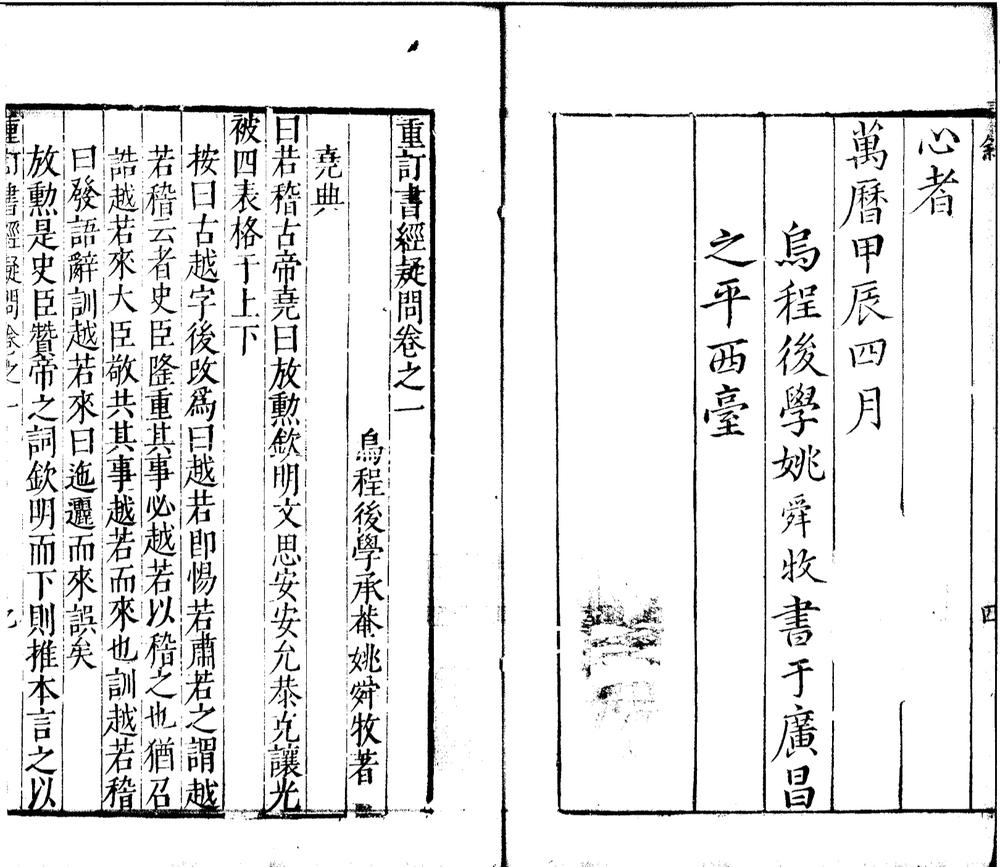 心者
萬曆甲辰四月
烏程後學姚舜牧書于廣昌
之平西臺
重訂書經疑問卷之一
烏程後學承菴姚舜牧著
堯典
曰若稽古帝堯曰放勲欽明文思安安允恭克讓光
被四表格于上下
按曰古越字後改爲曰越若卽惕若肅若之謂越
若稽云者史臣隆重其事必越若以稽之也猶召
誥越若來大臣敬共其事越若而來也訓越若稽
曰發語辭訓越若來曰迤邐而來誤矣
放勲是史臣贊帝之詞欽明而下則推本言之以
重訂書經疑問卷之一
四